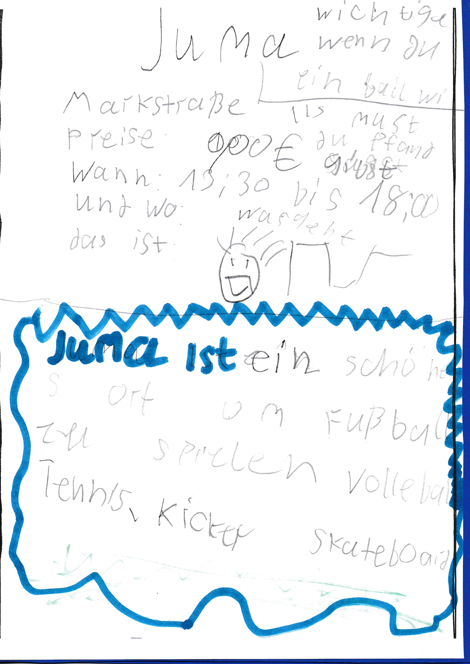 Juma
wichtige
wenn du
ein ball wi
must
du Pfand
Markstraße
Preise 000€
Wann: 15;30 bis 18;00
und wo
das ist
was geht
Juma ist ein schöne
s ort um Fußball
zu spielen Volleybal
Tennis, Kicker Skateboard